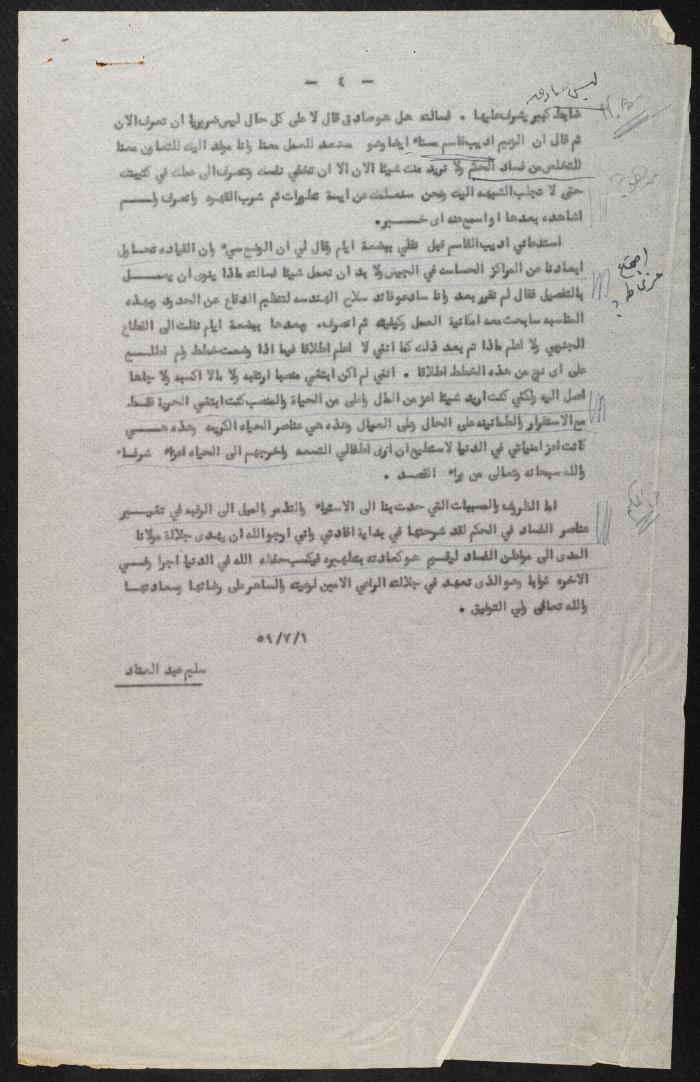 - ٤ -
ليس صادق
ضابط كبير يشرف عليها . فسالته هل هو صادق قال لا على كل حال ليس ضروريا ان تعرف الان
ثم قال ان الزعيم اديب قاسم مستاء ايضا وهو مستعد للعمل معنا وانا موفد اليك للتعاون معنا
للتخلص من فساد الحكم ولا نريد منك شيئا الان الا ان تخفي نفسك وتنصرف الى عملك في كتيبتك
حتى لا تجلب الشبهه اليك ونحن سنعلمك عن اية تطورات ثم شرب القهوه وانصرف ولم
اشاهده بعدها او اسمع عنه اى خبر .
استدعاني اديب القاسم قبل نقلي ببضعة ايام وقال لي ان الوضع سيء وان القياده تحاول
ابعادنا عن المراكز الحساسه في الجيش ولا بد ان نعمل شيئا فسالته ماذا ينوى ان يعمل
بالتفصيل فقال لم نقرر بعد وانا سادعو قائد سلاح الهندسه لتنظيم الدفاع عن الحدود وبهذه
المناسبه سابحث معه امكانية العمل وكيفيته ثم انصرف . وبعدها ببضعة ايام نقلت الى القطاع
الجنوبي ولا اعلم ماذا تم بعد ذلك كما انني لا اعلم اطلاقا فيما اذا وضعت خطط ولم اطلع
على اى نوع من هذه الخطط اطلاقا . انني لم اكن ابتغي منصبا ارتقبه ولا مالا اكسبه ولا جاها
اصل اليه ولكني كنت اريد شيئا اعز من المال واغلى من الحياة والمنصب كنت ابتغي الحرية فقط
مع الاستقرار والطمانينه على الحال وعلى العيال وهذه هي عناصر الحياه الكريمه وهذه هي
كانت اعز امنياتي في الدنيا لاستطيع ان اربي اطفالي التسعه واخرجهم الى الحياه اعزاء شرفاء
والله سبحانه وتعالى من وراء القصد .
اما الظروف والمسببات التي حدت بنا الى الاستياء والتذمر والميل الى الرغبه في تغيير
عناصر الفساد في الحكم لقد شرحتها في بداية افادتي واني ارجو الله ان يهدى جلالة مولانا
المفدى الى مواطن الفساد ليقسم هو كعادته بتطهيره فيكسب حفظه الله في الدنيا اجرا وفي
الاخره ثوابا وهو الذى نعهد في جلالته الراعي الامين لرعيته والساهر على رضائها وسعادتها
والله تعالى ولي التوفيق .
٥٩/٧/١
سليم عبد